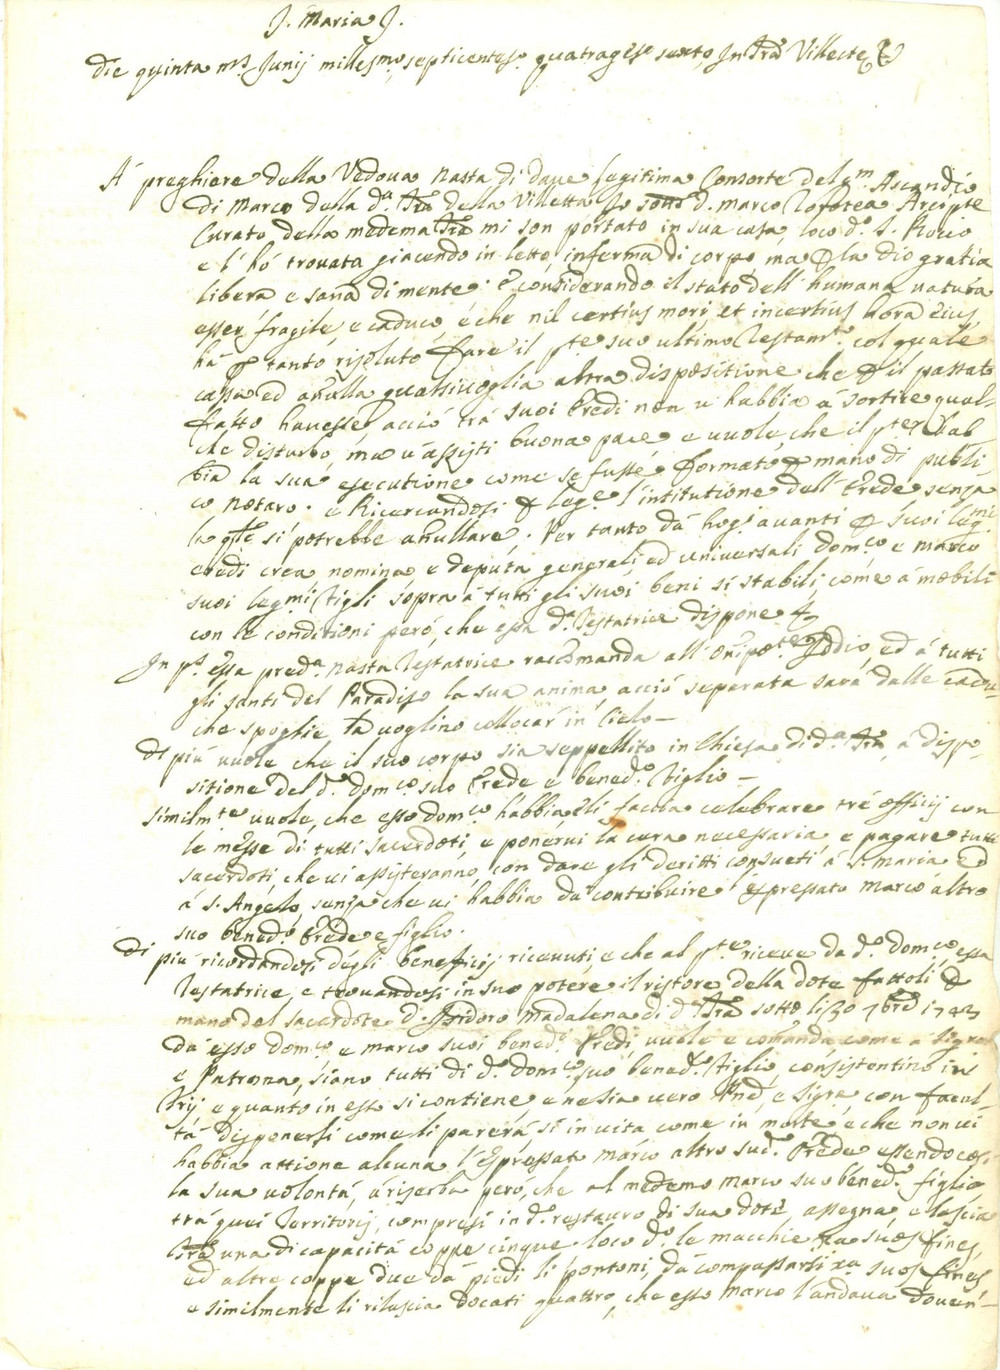 J. Maria J.
Die quinta m.s Junij millesmo septicentesº quatragesº sexto, In Tra Villecte &
A' preghiere della Vedova Nasta di Dave legitima Consorte del qm. Ascandio
di Marco della d.a Tra della Villetta Io sottº d. Marco Arcipte
Curato della medema Tra mi son portato in sua casa, loco d.º S. Rocco
e l'hó trovata giacendo in letto, inferma di corpo, ma p la dio gratia
libera e sana di mente. E considerando il stato dell'humana natura
esser fragile, e caduco, e che nil certius mori, et incertius hora eius,
há p tanto risoluto fare il pnte suo ultimo Testam.to col quale
cassa ed anulla qualsivoglia altra dispositione che p il passato
fatto havesse, acció trá suoi Eredi non vi habbia á sortire qual-
che disturbo, ma v'assisti buona pace, e vuole, che il pnte hab
bia la sua esecutione come se fusse formato p mano di publi
co notaro. e Ricercandosi p lege l'intitutione dell'Erede senza
la qle si potrebbe anullare. Per tanto da hogi avanti p suoi leg.mi
eredi crea, nomina, e deputa generali, ed universali, Dom.co e Marco
suoi leg.mi figli sopra á tutti gli suoi beni sì stabili, come á mobili
con le conditioni però, che essa d.a Testatrice dispone &
In p.s essa pred.a Nasta Testatrice raccomanda all'Onipote Iddio, ed á tutti
gli santi del Paradiso la sua anima, acció separata sará dalle cadu-
che spoglie la voglino collocar in Cielo —
Di più vuole che il suo corpo sia seppellito in Chiesa di d.a Tra, a dispo
sitione del d.º Dom.co suo Erede e bened.º figlio —
Similm.te vuole, che esso Dom.co habbia di far celebrare tré officij con
le messe di tutti sacerdoti, e ponervi la cera necessaria, e pagare tutti
sacerdoti, che vi assisteranno, con dare gli deritti consueti á S. Maria ed
á S. Angelo, senza che vi habbia da contribuire espressato Marco altro
suo bened.º Erede e figlio.
Di più ricordandosi degli beneficij ricevuti, e che al pnte riceve da d.º Dom.co essa
Testatrice, e trovandosi in suo potere il ristoro della dote fattoli p
mano del sacerdote D. Isidoro Madalena di d.a Tra sotto li 30 7bre 1743
da esso Dom.co e Marco suoi bened. Eredi vuole e comanda come a Signora
e Patrona, siano tutti di d.º Dom.co suo bened.º figlio, consistentino in
e quanto in esso si contiene, e ne sia vero Pne, e Signre con facul-
tà disponersi come li parerá sì in vita come in morte e che non vi
habbia attione alcuna l'Espressato Marco altro sud.º Erede essendo così
la sua volontà, á riserba però, che al medemo Marco suo bened.º figlio
trá quei Territorij, compresi in d.º restauro di sua dote, assegna, e lascia
Tra una di capacitá coppe cinque loco d.º le macchie xa suos fines,
ed altre coppe due da piedi li Pontoni, da compassarsi xa suos fines
e similmente li rilascia docati quattro, che esso Marco l'andava doven-